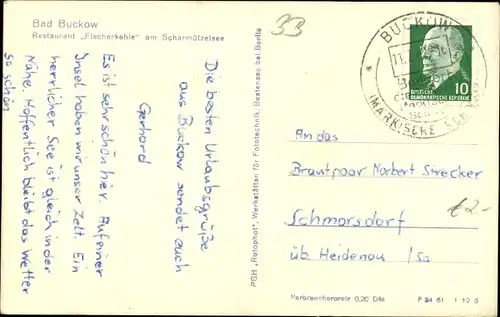 Bad Buckow
Restaurant „Fischerkehle" am Scharmützelsee
33
Die besten Urlaubsgrüße
aus Buckow sendet euch
Gerhard
Es ist sehr schön hier. Auf einer
Insel haben wir unser Zelt. Ein
herrlicher See ist gleich in der
Nähe. Hoffentlich bleibt das Wetter
so schön
PGH „Rotophot", Werkstätten für Fototechnik, Bestensee bei Berlin
BUCKOW
(MÄRKISCHE
10
DEUTSCHE
DEMOKRATISCHE REPUBLIK
An das
Brautpaar Norbert Strecker
Schmorsdorf
üb. Heidenau / Sa
€2-
Verbraucherpreis 0,20 DM